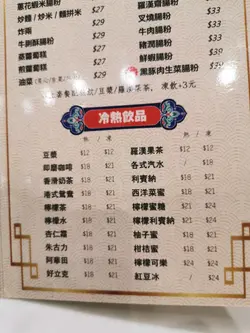 蔥花蝦米腸粉 $27
炒麵 / 炒米 / 麵拼米 $29
炸兩 $29
牛脷酥腸粉 $29
蒸蘿蔔糕 $27
煎蘿蔔糕 $29
羅漢齋腸粉
叉燒腸粉 $33
牛肉腸粉 $33
豬潤腸粉
鮮蝦腸粉 $39
黑豚肉生菜腸粉 $39
凍飲+3元
冷熱飲品
熱 / 凍
豆漿 $12 $12
即磨咖啡 $18 $21
香滑奶茶 $18 $21
港式鴛鴦 $18 $21
檸檬茶 $18 $21
檸檬水 $18 $21
杏仁霜 $18 $21
朱古力 $18 $21
阿華田 $18 $21
好立克 $18 $21
熱 / 凍
羅漢果茶 $12 $12
各式汽水 / $18
利賓納 $18 $21
西洋菜蜜 $18 $21
檸檬蜜糖 $21 $24
檸檬利賓納 $21 $24
柚子蜜 $18 $21
柑桔蜜 $18 $21
檸檬可樂 $24 $24
紅豆冰 / $24